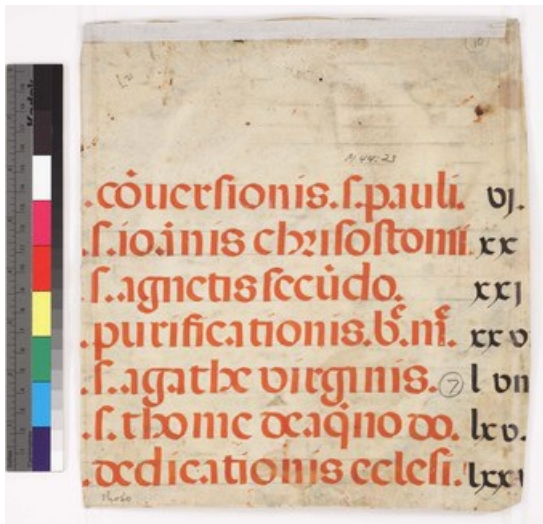 M.44:23
.cōuersionis.s.pauli. vj.
.s.ioānis chrisostomi xx
.s.agnetis secūdo. xxj
.purificationis.b.m. xxv
.s.agathe virginis. 7 lvii
.s.thome de aq̇no do. lxv.
.dedicationis ecclesi. lxxi